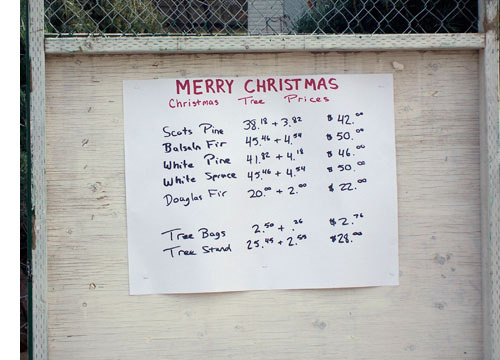 MERRY CHRISTMAS
Christmas Tree Prices
Scots Pine 38.18 + 3.82 $ 42.00
Balsam Fir 45.46 + 4.54 $ 50.00
White Pine 41.82 + 4.18 $ 46.00
White Spruce 45.46 + 4.54 $ 50.00
Douglas Fir 20.00 + 2.00 $ 22.00
Tree Bags 2.50 + .26 $ 2.76
Tree Stand 25.45 + 2.55 $28.00